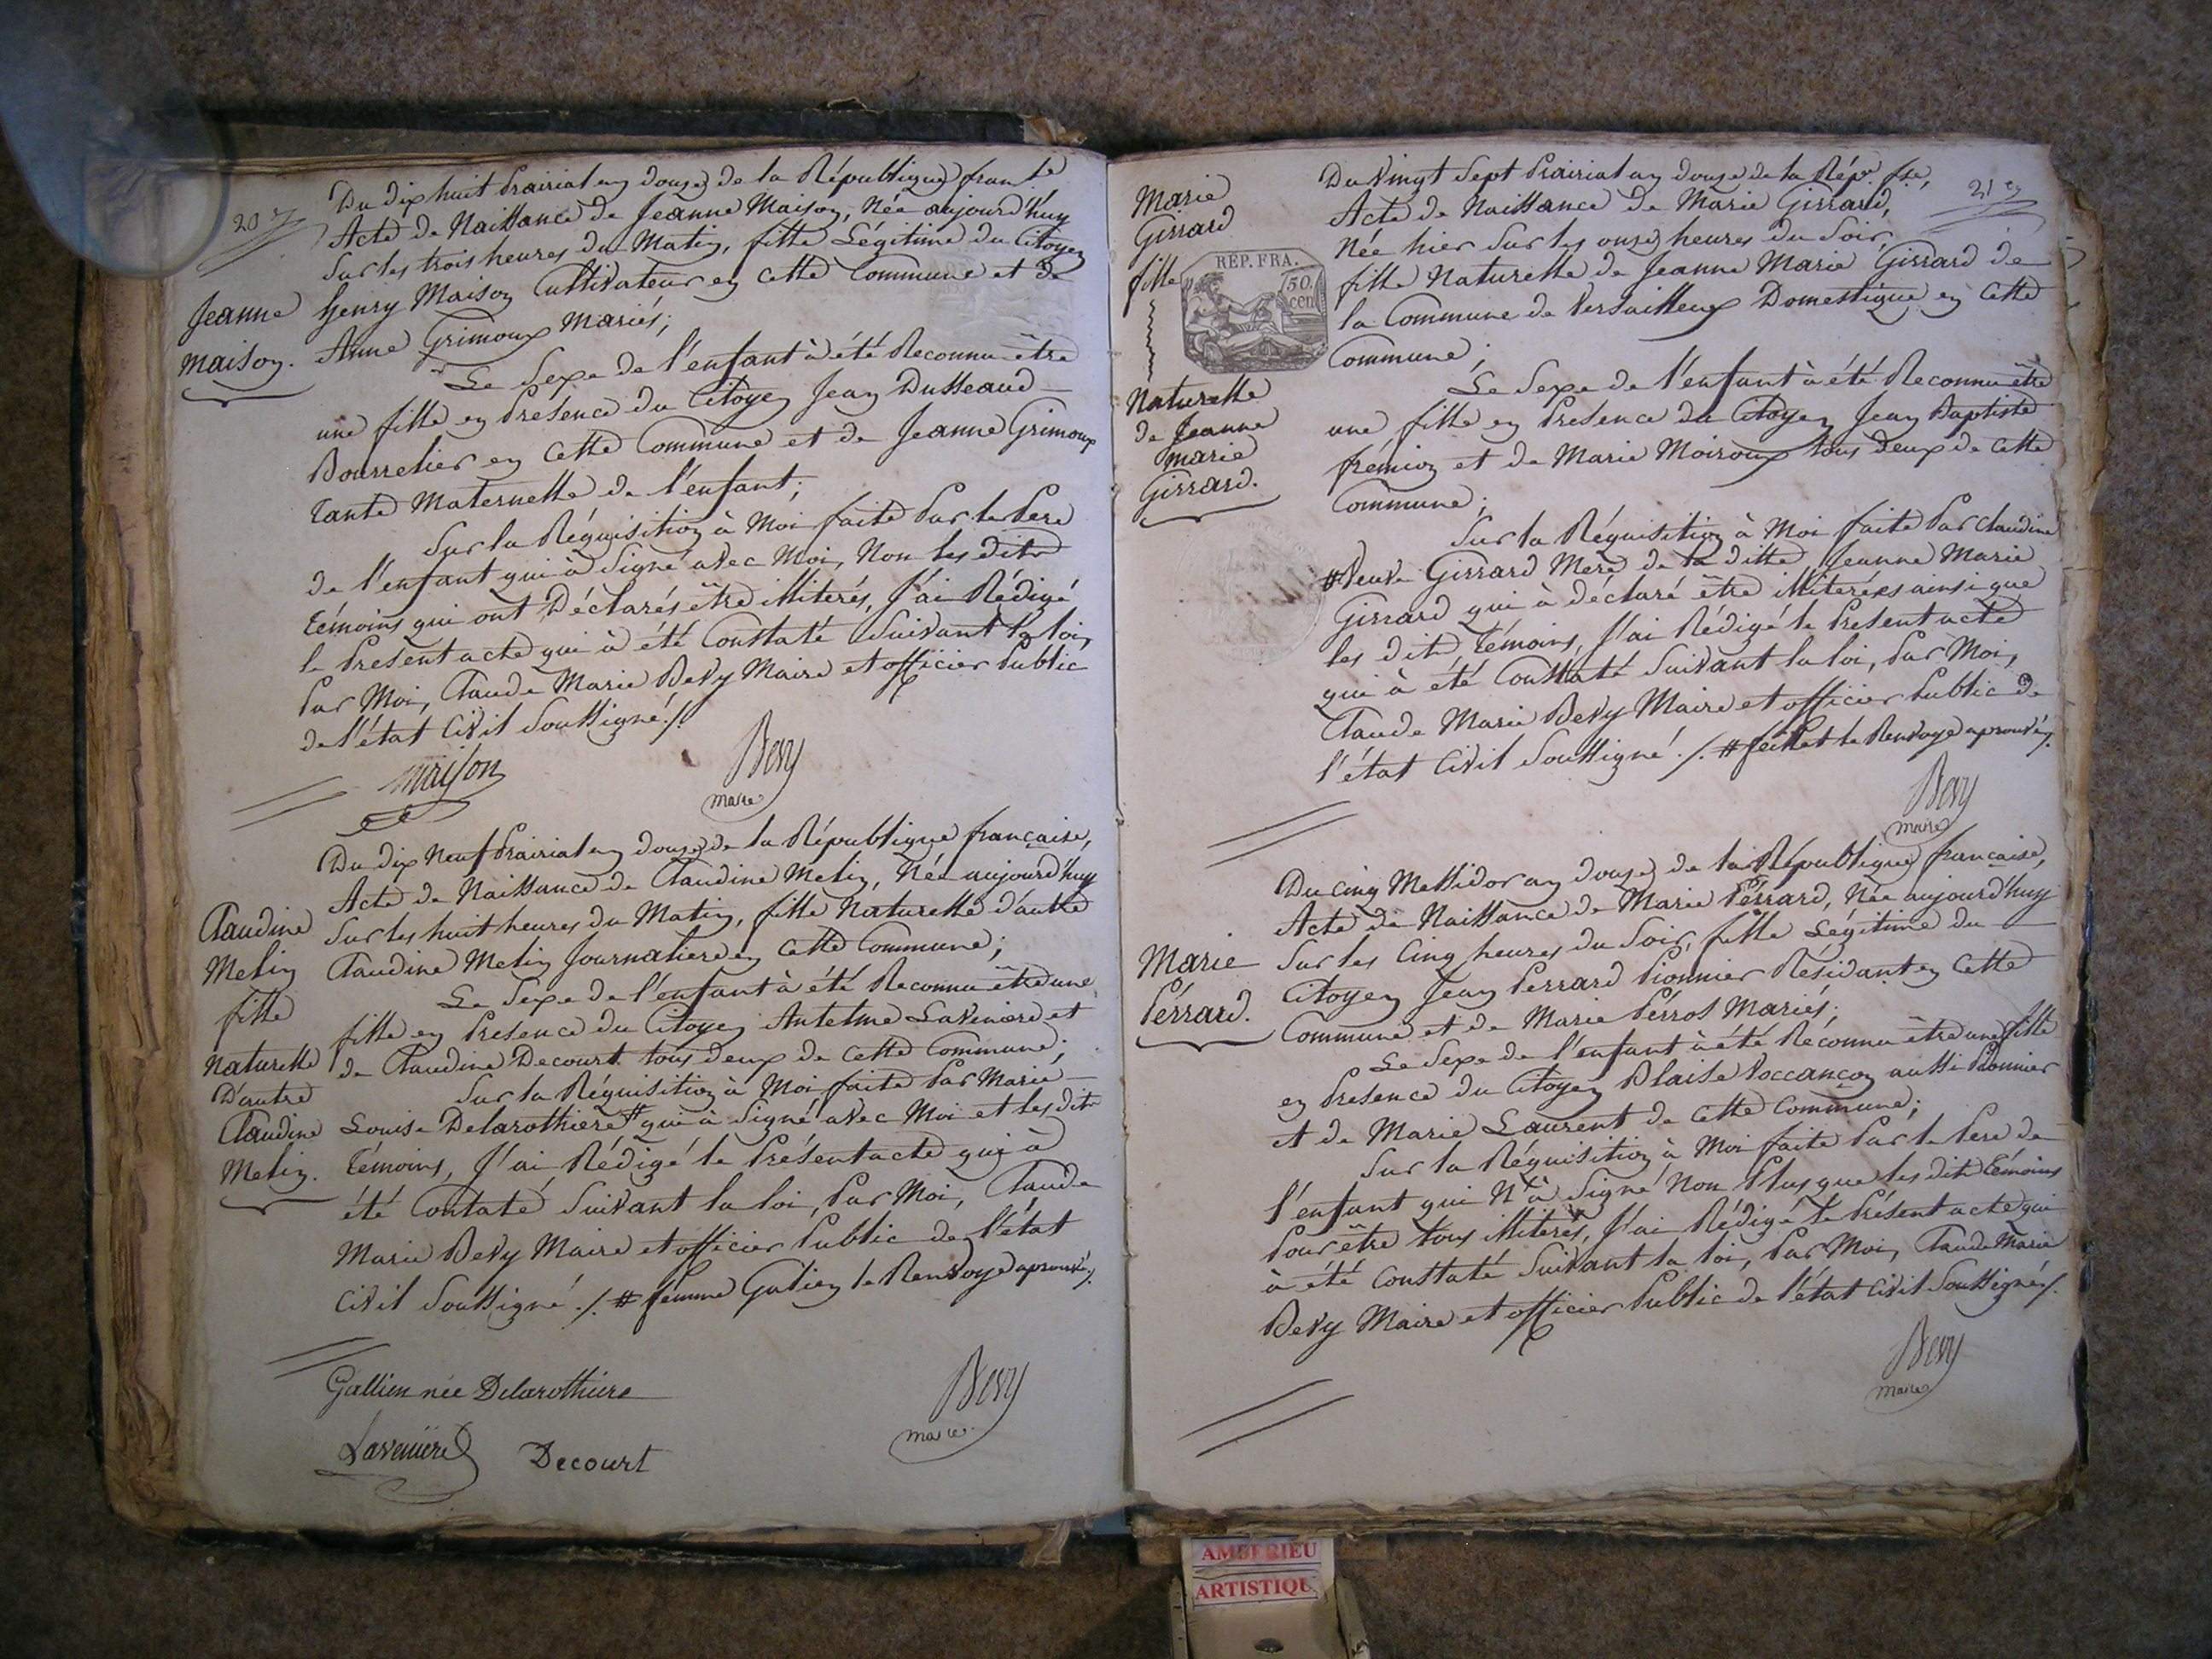 20e
Du dix huit Prairial en douze de la République franse
Acte de Naissance de Jeanne Maison, Née aujourd'huy
Sur les trois heures du Matin, fille Légitime du Citoyen
Henry Maison Cultivateur en cette Commune et de
Anne Grimoux Mariés;
Jeanne
Maison.
Le Sexe de l'enfant à été Reconnu être
une fille en Présence du Citoyen Jean Dusseaud
Bourrelier en cette Commune et de Jeanne Grimoux
Tante Maternelle de l'enfant;
Sur la Réquisition à Moi faite Par le Pere
de l'enfant qui à Signé avec Moi, Non les dits
Témoins qui ont Déclarés être illiterés, J'ai Rédigé
le Présent acte qui à été Constaté Suivant la loi,
Par Moi, Claude Marie Bevy Maire et officier Public
de l'état Civil Soussigné./.
Maison
Bevy
maire
Du dix Neuf Prairial en douze de la République française,
Acte de Naissance de Claudine Melin, Née aujourd'huy
Sur les huit heures du Matin, fille Naturelle d'autre
Claudine Melin Journaliere en cette Commune;
Claudine
Melin
fille
Naturelle
D'autre
Claudine
Melin.
Le Sexe de l'enfant à été Reconnu être une
fille en Présence du Citoyen Antelme Laveniere et
de Claudine Decourt tous deux de cette Commune;
Sur la Réquisition à Moi faite Par Marie
Louise Delarothiere # qui à Signé avec Moi et les dits
Témoins, J'ai Rédigé le Présent acte qui à
été Contaté Suivant la loi, Par Moi, Claude
Marie Bevy Maire et officier Public de l'état
Civil Soussigné ./. # femme Galien le Renvoye aprouvé./.
Gallien née Delarothiere
Bevy
maire
Laveniere
Decourt
21e
Du Vingt Sept Prairial an douze de la Rép. fse,
Acte de Naissance de Marie Girrard,
Née hier Sur les onze heures du Soir,
fille Naturelle de Jeanne Marie Girrard de
la Commune de Versailleux Domestique en Cette
Commune;
Marie
Girrard
fille
Naturelle
de Jeanne
Marie
Girrard.
RÉP. FRA.
50.
cen.
Le Sexe de l'enfant à été Reconnu être
une fille en Présence du Citoyen Jean Baptiste
frémion et de Marie Moiroux tous Deux de Cette
Commune;
Sur la Réquisition à Moi faite Par Claudine
# Veuve Girrard Mere de la ditte Jeanne Marie
Girrard qui à déclaré être illiterées ainsi que
les dits Témoins, J'ai Rédigé le Présent acte
qui à été Constaté Suivant la loi, Par Moi,
Claude Marie Bevy Maire et officier Public de
l'état Civil Soussigné ./. # le Renvoye aprouvé./.
Bevy
maire
Du Cinq Messidor an douze de la République française,
Acte de Naissance de Marie Pérrard, Née aujourd'huy
Sur les Cinq heures du Soir, fille Légitime du
Citoyen Jean Perrard Pionnier Résidant en Cette
Commune et de Marie Pérros Mariés;
Marie
Pérrard.
Le Sexe de l'enfant à été Réconnu être une fille
en Présence du Citoyen Blaise Voccançon aussi Pionnier
et de Marie Laurent de Cette Commune;
Sur la Réquisition à Moi faite Par le Pere de
l'enfant qui N'à Signé Non Plus que les dits Témoins
Pour être tous illiterés, J'ai Rédigé le Présent acte qui
à été Constaté Suivant la loi, Par Moi, Claude Marie
Bevy Maire et officier Public de l'état Civil Soussigné./.
Bevy
maire
AMBERIEU
ARTISTIQUE